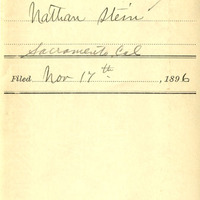 Nathan Stein
Sacramento, Cal
Filed Nov 17th, 1896